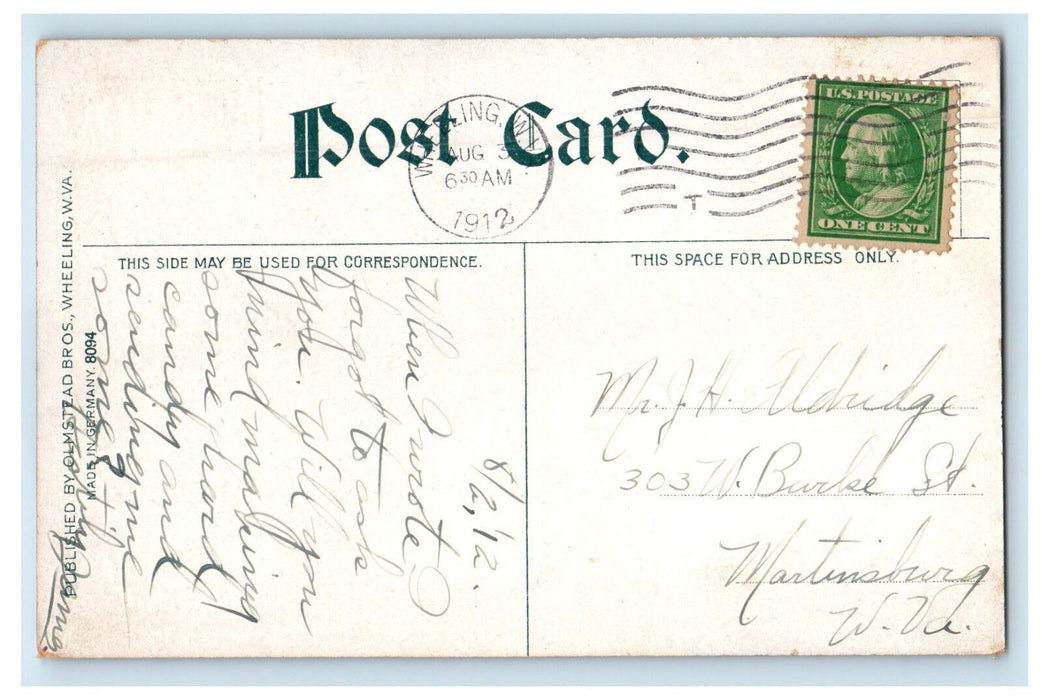 Post Card.
WHEELING, W.VA.
AUG 3
6 30 AM
1912
T
U.S. POSTAGE
ONE CENT
THIS SIDE MAY BE USED FOR CORRESPONDENCE.
THIS SPACE FOR ADDRESS ONLY.
8/2/12.
When I wrote I
forgot to ask
you. Will you
mind making
some hard
candy and
sending me
some?
Mr. J. H. Aldridge
303 W. Burke St.
Martinsburg
W. Va.
PUBLISHED BY OLMSTEAD BROS., WHEELING, W. VA.
MADE IN GERMANY. 8094